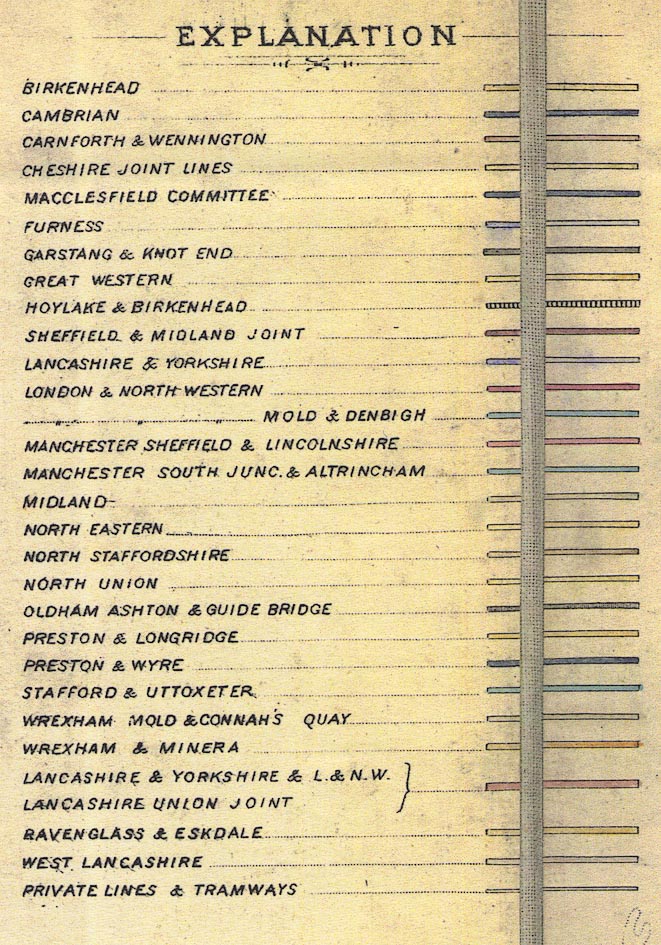 EXPLANATION
BIRKENHEAD
CAMBRIAN
CARNFORTH & WENNINGTON
CHESHIRE JOINT LINES
MACCLESFIELD COMMITTEE
FURNESS
GARSTANG & KNOT END
GREAT WESTERN
HOYLAKE & BIRKENHEAD
SHEFFIELD & MIDLAND JOINT
LANCASHIRE & YORKSHIRE
LONDON & NORTH WESTERN
" " " MOLD & DENBIGH
MANCHESTER SHEFFIELD & LINCOLNSHIRE
MANCHESTER SOUTH JUNC. & ALTRINCHAM
MIDLAND
NORTH EASTERN
NORTH STAFFORDSHIRE
NORTH UNION
OLDHAM ASHTON & GUIDE BRIDGE
PRESTON & LONGRIDGE
PRESTON & WYRE
STAFFORD & UTTOXETER
WREXHAM MOLD & CONNAH'S QUAY
WREXHAM & MINERA
LANCASHIRE & YORKSHIRE & L. & N.W.
LANCASHIRE UNION JOINT
RAVENGLASS & ESKDALE
WEST LANCASHIRE
PRIVATE LINES & TRAMWAYS